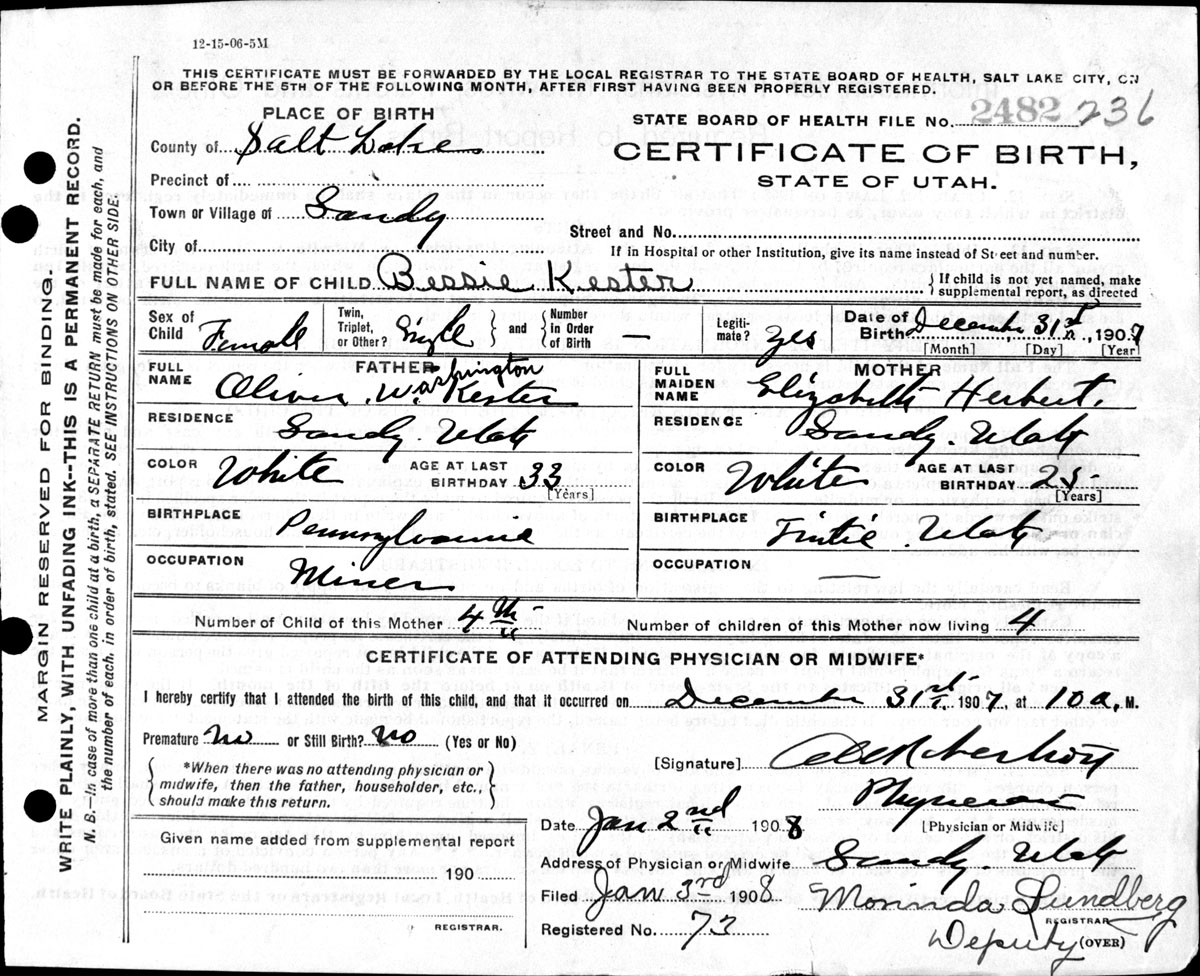 12-15-06-5M
THIS CERTIFICATE MUST BE FORWARDED BY THE LOCAL REGISTRAR TO THE STATE BOARD OF HEALTH, SALT LAKE CITY, ON
OR BEFORE THE 5TH OF THE FOLLOWING MONTH, AFTER FIRST HAVING BEEN PROPERLY REGISTERED.
PLACE OF BIRTH
STATE BOARD OF HEALTH FILE NO. 2482 236
County of Salt Lake
CERTIFICATE OF BIRTH,
STATE OF UTAH.
Precinct of
Town or Village of Sandy
Street and No.
City of
If in Hospital or other Institution, give its name instead of Street and number.
FULL NAME OF CHILD Bessie Kester
If child is not yet named, make supplemental report, as directed
Sex of Child Female Twin, Triplet, or Other? Single and Number In Order of Birth Legitimate? Yes Date of Birth December 31st 1907
[Month] [Day] [Year]
FATHER
FULL NAME Oliver W. Washington Kester
RESIDENCE Sandy Utah
COLOR White AGE AT LAST BIRTHDAY 33 [Years]
BIRTHPLACE Pennsylvania
OCCUPATION Miner
MOTHER
FULL MAIDEN NAME Elizabeth Herbert
RESIDENCE Sandy. Utah
COLOR White AGE AT LAST BIRTHDAY 23 [Years]
BIRTHPLACE Tintic Utah
OCCUPATION —
Number of Child of this Mother 4th Number of children of this Mother now living 4
CERTIFICATE OF ATTENDING PHYSICIAN OR MIDWIFE*
I hereby certify that I attended the birth of this child, and that it occurred on December 31st 1907, at 10 a. M.
Premature No or Still Birth? No (Yes or No)
*When there was no attending physician or
midwife, then the father, householder, etc.,
should make this return.
[Signature]
Physician
[Physician or Midwife]
Date Jan 2nd 1908
Address of Physician or Midwife Sandy Utah
Given name added from supplemental report
190
REGISTRAR.
Filed Jan 3rd 1908
Morinda Lundberg
REGISTRAR
Registered No. 73
Deputy (OVER)
MARGIN RESERVED FOR BINDING.
WRITE PLAINLY, WITH UNFADING INK--THIS IS A PERMANENT RECORD.
N. B.--In case of more than one child at a birth, a SEPARATE RETURN must be made for each, and
the number of each, in order of birth, stated. SEE INSTRUCTIONS ON OTHER SIDE.